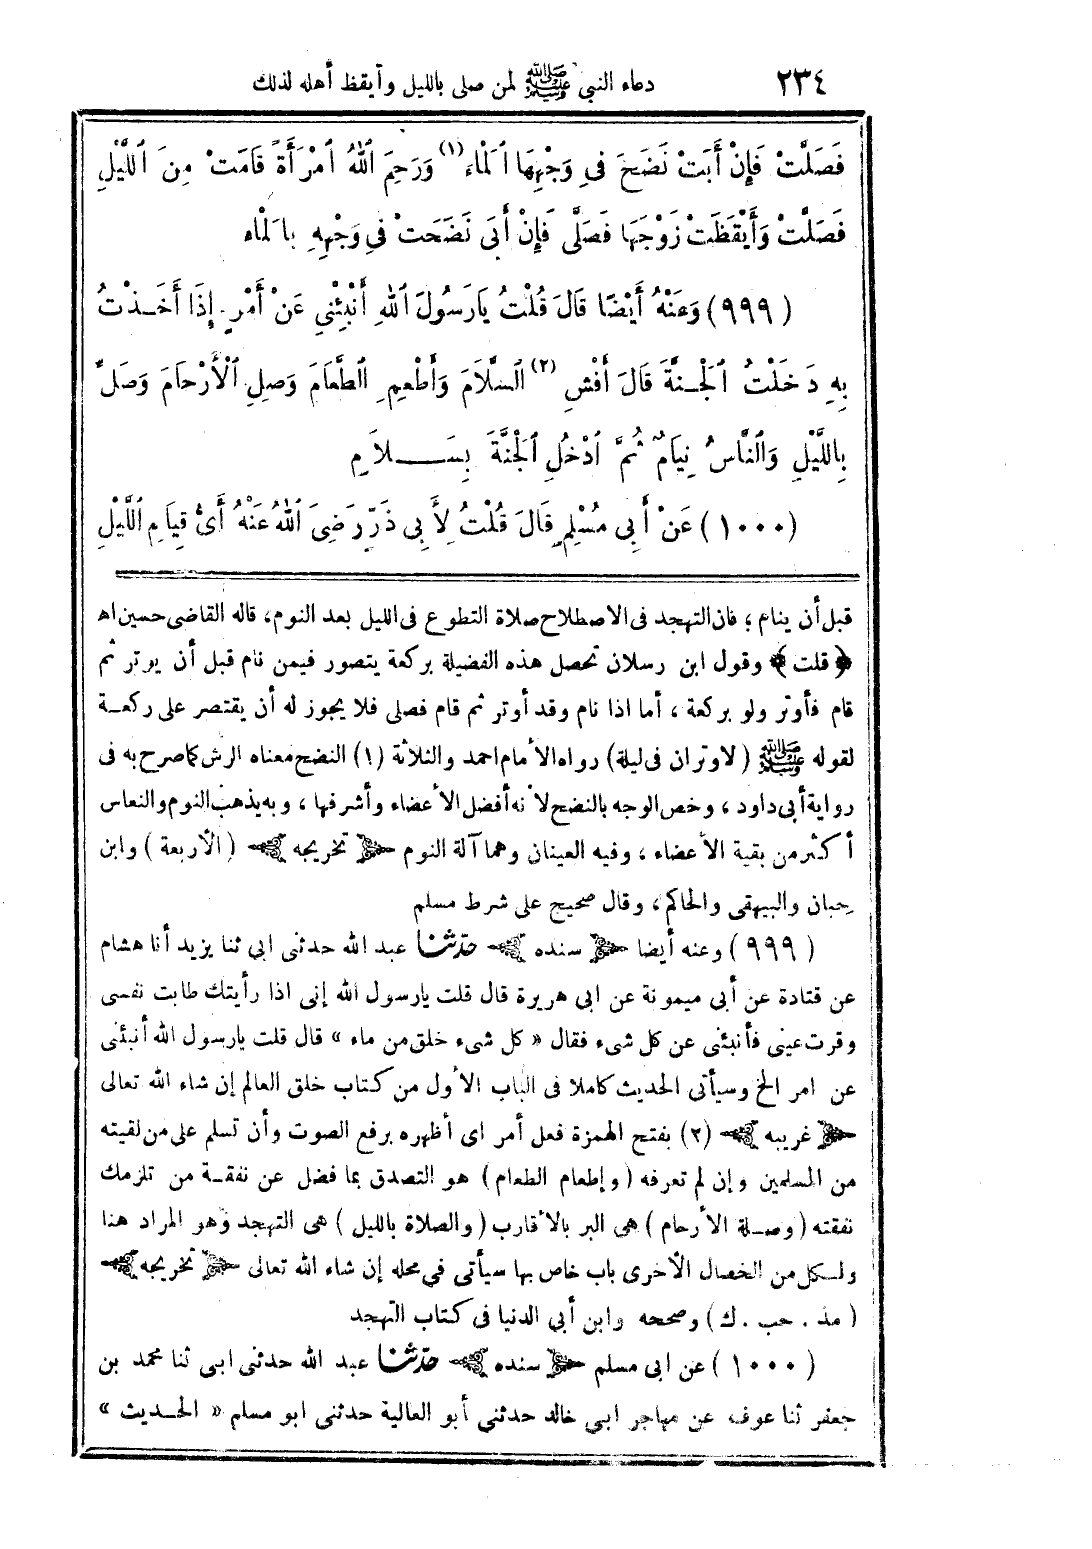 ٢٣٤ دعاء النبي ﷺ لمن صلى بالليل وأيقظ أهله لذلك
فَصَلَّتْ فَإِنْ أَبَتْ نَضَحَ فِى وَجْهِهَا ٱلْمَاءَ (١) وَرَحِمَ ٱللهُ ٱمْرَأَةً قَامَتْ مِنَ ٱللَّيْلِ
فَصَلَّتْ وَأَيْقَظَتْ زَوْجَهَا فَصَلَّى فَإِنْ أَبَى نَضَحَتْ فِى وَجْهِهِ بِالْمَاءِ
(٩٩٩) وَعَنْهُ أَيْضًا قَالَ قُلْتُ يَارَسُولَ ٱللهِ أَنْبِئْنِي عَنْ أَمْرٍ إِذَا أَخَذْتُ
بِهِ دَخَلْتُ ٱلْجَنَّةَ قَالَ أَفْشِ (٢) ٱلسَّلَامَ وَأَطْعِمِ ٱلطَّعَامَ وَصِلِ ٱلْأَرْحَامَ وَصَلِّ
بِاللَّيْلِ وَٱلنَّاسُ نِيَامٌ ثُمَّ ٱدْخُلِ ٱلْجَنَّةَ بِسَـــلَامٍ
(١٠٠٠) عَنْ أَبِى مُسْلِمٍ قَالَ قُلْتُ لِأَبِى ذَرٍّ رَضِىَ ٱللهُ عَنْهُ أَىُّ قِيَامِ ٱللَّيْلِ
قبل أن ينام؛ فان التهجد فى الاصطلاح صلاة التطوع فى الليل بعد النوم، قاله القاضى حسين اه
﴿قلت﴾ وقول ابن رسلان تحصل هذه الفضيلة بركعة يتصور فيمن نام قبل أن يوتر ثم
قام فأوتر ولو بركعة، أما اذا نام وقد أوتر ثم قام فصلى فلا يجوز له أن يقتصر على ركعة
لقوله ﷺ (لاوتران فى ليلة) رواه الأمام احمد والثلاثة (١) النضح معناه الرش كما صرح به فى
رواية أبى داود، وخص الوجه بالنضح لأنه أفضل الأعضاء وأشرفها، وبه يذهب النوم والنعاس
أكثر من بقية الأعضاء، وفيه العينان وهما آلة النوم ﴿تخريجه﴾ (الأربعة) وابن
حبان والبيهقى والحاكم، وقال صحيح على شرط مسلم
(٩٩٩) وعنه أيضا ﴿سنده﴾ حدثنا عبد الله حدثنى ابى ثنا يزيد أنا هشام
عن قتادة عن أبى ميمونة عن ابى هريرة قال قلت يارسول الله إنى اذا رأيتك طابت نفسى
وقرت عينى فأنبئنى عن كل شىء فقال «كل شىء خلق من ماء» قال قلت يارسول الله أنبئنى
عن امر الخ وسيأتى الحديث كاملا فى الباب الأول من كتاب خلق العالم إن شاء الله تعالى
﴿غريبه﴾ (٢) بفتح الهمزة فعل أمر اى أظهره برفع الصوت وأن تسلم على من لقيته
من المسلمين وإن لم تعرفه (وإطعام الطعام) هو التصدق بما فضل عن نفقة من تلزمك
نفقته (وصلة الأرحام) هى البر بالأقارب (والصلاة بالليل) هى التهجد وهو المراد هنا
ولكل من الخصال الأخرى باب خاص بها سيأتى في محله إن شاء الله تعالى ﴿تخريجه﴾
(مذ . حب . ك) وصححه وابن أبي الدنيا فى كتاب التهجد
(١٠٠٠) عن ابى مسلم ﴿سنده﴾ حدثنا عبد الله حدثنى ابى ثنا محمد بن
جعفر ثنا عوف عن مهاجر ابى خالد حدثني أبو العالية حدثنى ابو مسلم «الحديث»